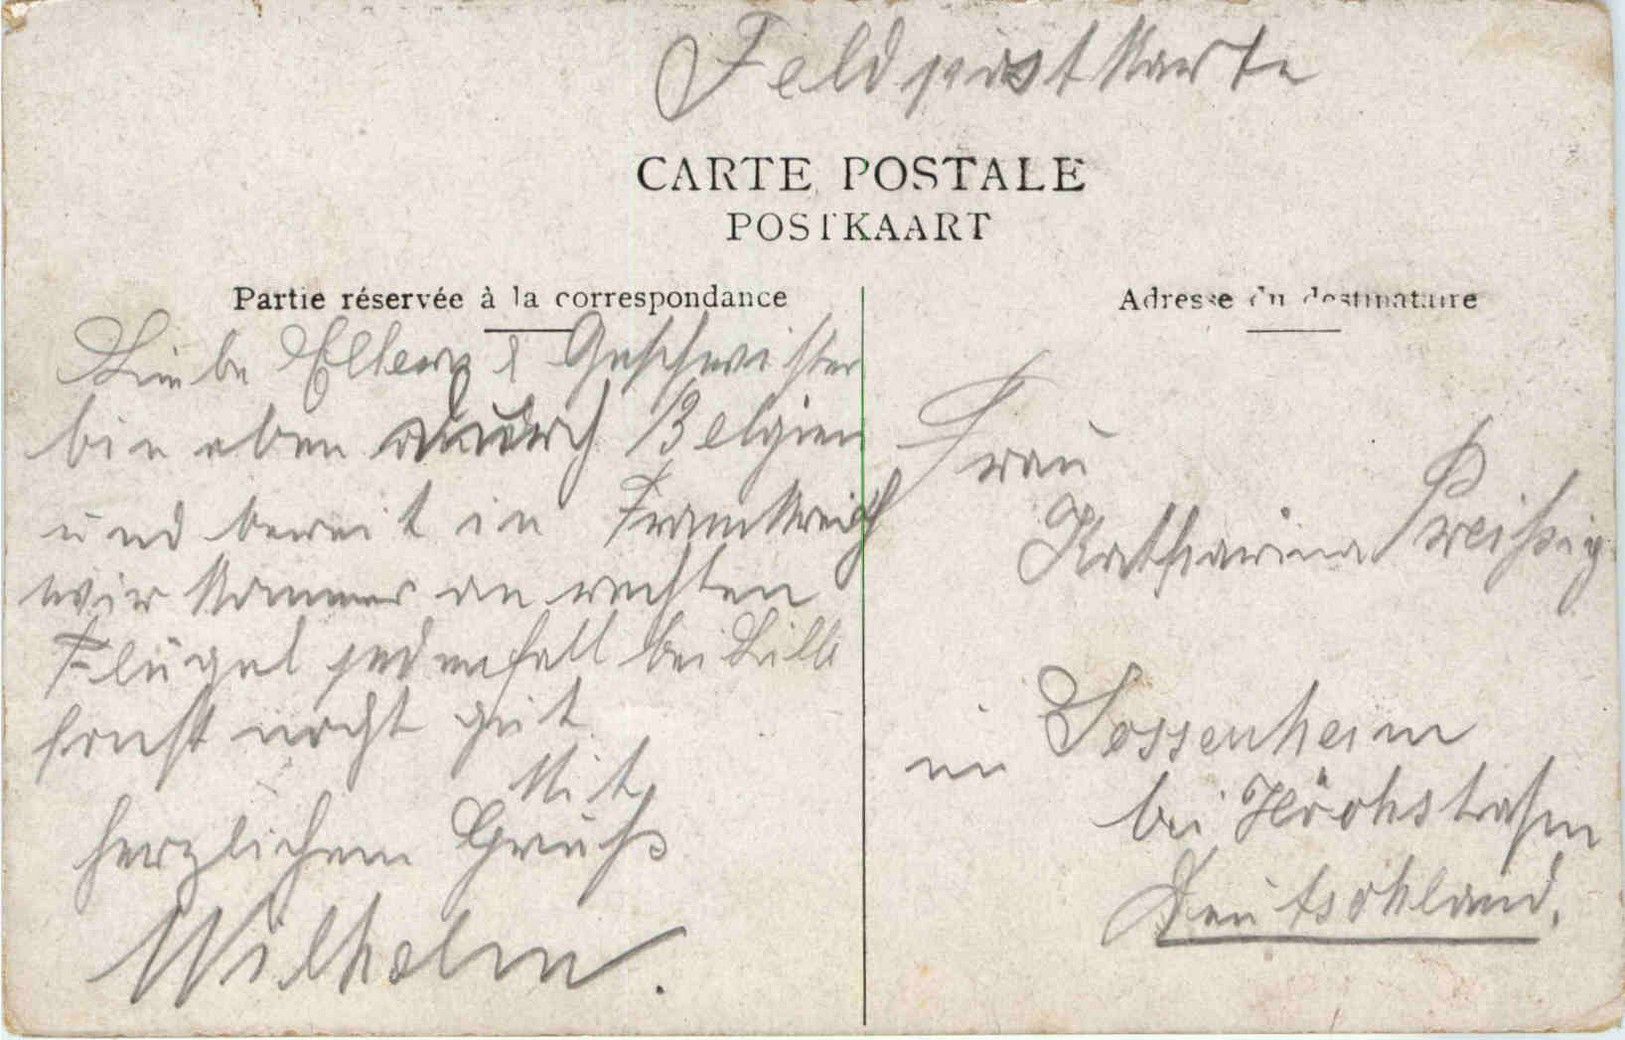 Feldpostkarte
CARTE POSTALE
POSTKAART
Partie réservée à la correspondance
Liebe Eltern & Geschwister
bin eben durch Belgien
und bereit in Frankreich
wir kommen an rechten
Flügel jedenfall bei Lille
sonst noch gut
Mit
herzlichem Gruß
Wilhelm.
Adresse du destinataire
Frau
Katharina Preißig
in Sossenheim
bei Höchst
Deutschland.